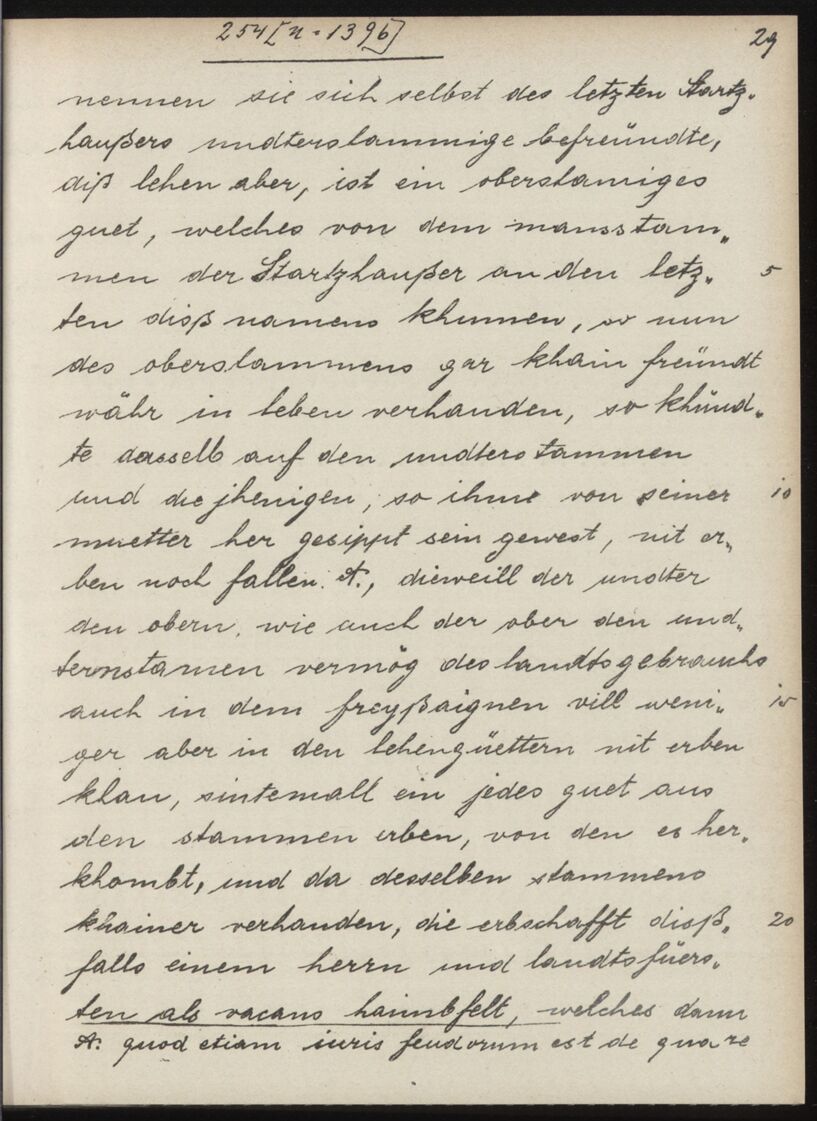 254 [n. 1396]
29
nennen sie sich selbst des letzten Startz„
haußers undterstammige befreündte,
diß lehen aber, ist ein oberstamiges
guet, welches von dem mansstam„
men der Startzhaußer an den letz„ 5
ten diß namens khumen, so nun
des oberstammens gar khain freündt
währ in leben verhanden, so khünd„
te dasselb auf den undterstammen
und die jhenigen, so ihme von seiner 10
muetter her gesippt sein gewest, nit er„
ben noch fallen A., dieweill der undter
den obern, wie auch der ober den und„
ternstamen vermög des landtsgebrauchs
auch in dem freyßaignen vill weni„ 15
ger aber in den lehengüettern nit erben
klan, sintemall ein jedes guet aus
den stammen erben, von den es her„
khombt, und da desselben stammens
khainer verhanden, die erbschafft diß„ 20
falls einem herrn und landtsfüers„
ten als vacans haimbfelt, welches dann
A. quod etiam iuris feudorum est de qua re